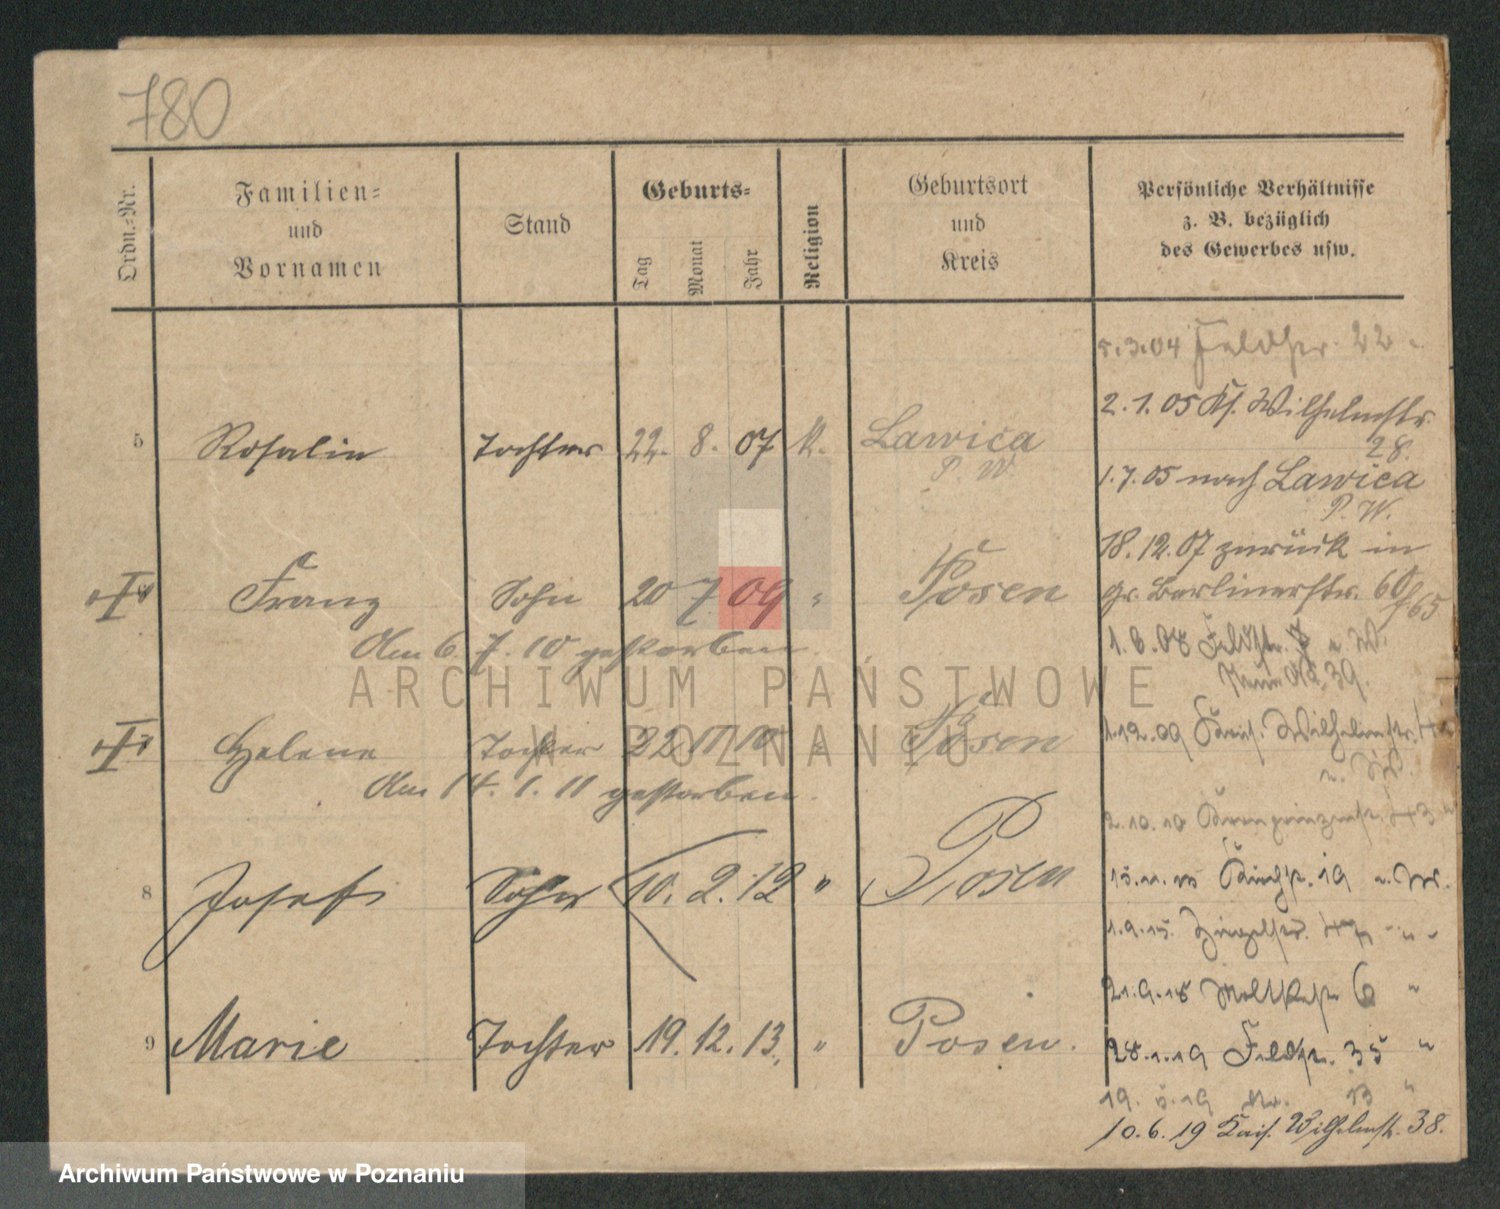 780
Ordn.-Nr.
Familien-
und
Vornamen
Stand
Geburts-
Tag
Monat
Jahr
Religion
Geburtsort
und
Kreis
Persönliche Verhältnisse
z. B. bezüglich
des Gewerbes usw.
5.3.04 Feldstr. 22
2.1.05 Ks. Wilhelmstr.
28.
5 Rosalie Tochter 22. 8. 07 K. Lawica
P. W.
1.7.05 nach Lawica
P. W.
18.12.07 zurück in
gr. Berlinerstr. 60/65
Franz Sohn 20 7 09 " Posen
Am 6. 7. 10 gestorben.
1.8.08 Feldstr. 7 n. W.
39.
Helene Tochter 22 11 10 " Posen
Am 14. 1. 11 gestorben.
1.12.09 Kais. Wilhelmstr.
2.10.10 Kronprinzenstr. 43 "
8 Josef Sohn 10. 2. 12 " Posen
19
1.9.15.
21.9.18 Moltkestr. 6 "
9 Marie Tochter 19. 12. 13. " Posen.
28.1.19 Feldstr. 35 "
19. 5.19 13 "
10.6.19 Kais. Wilhelmstr. 38.
ARCHIWUM PAŃSTWOWE
W POZNANIU
Archiwum Państwowe w Poznaniu